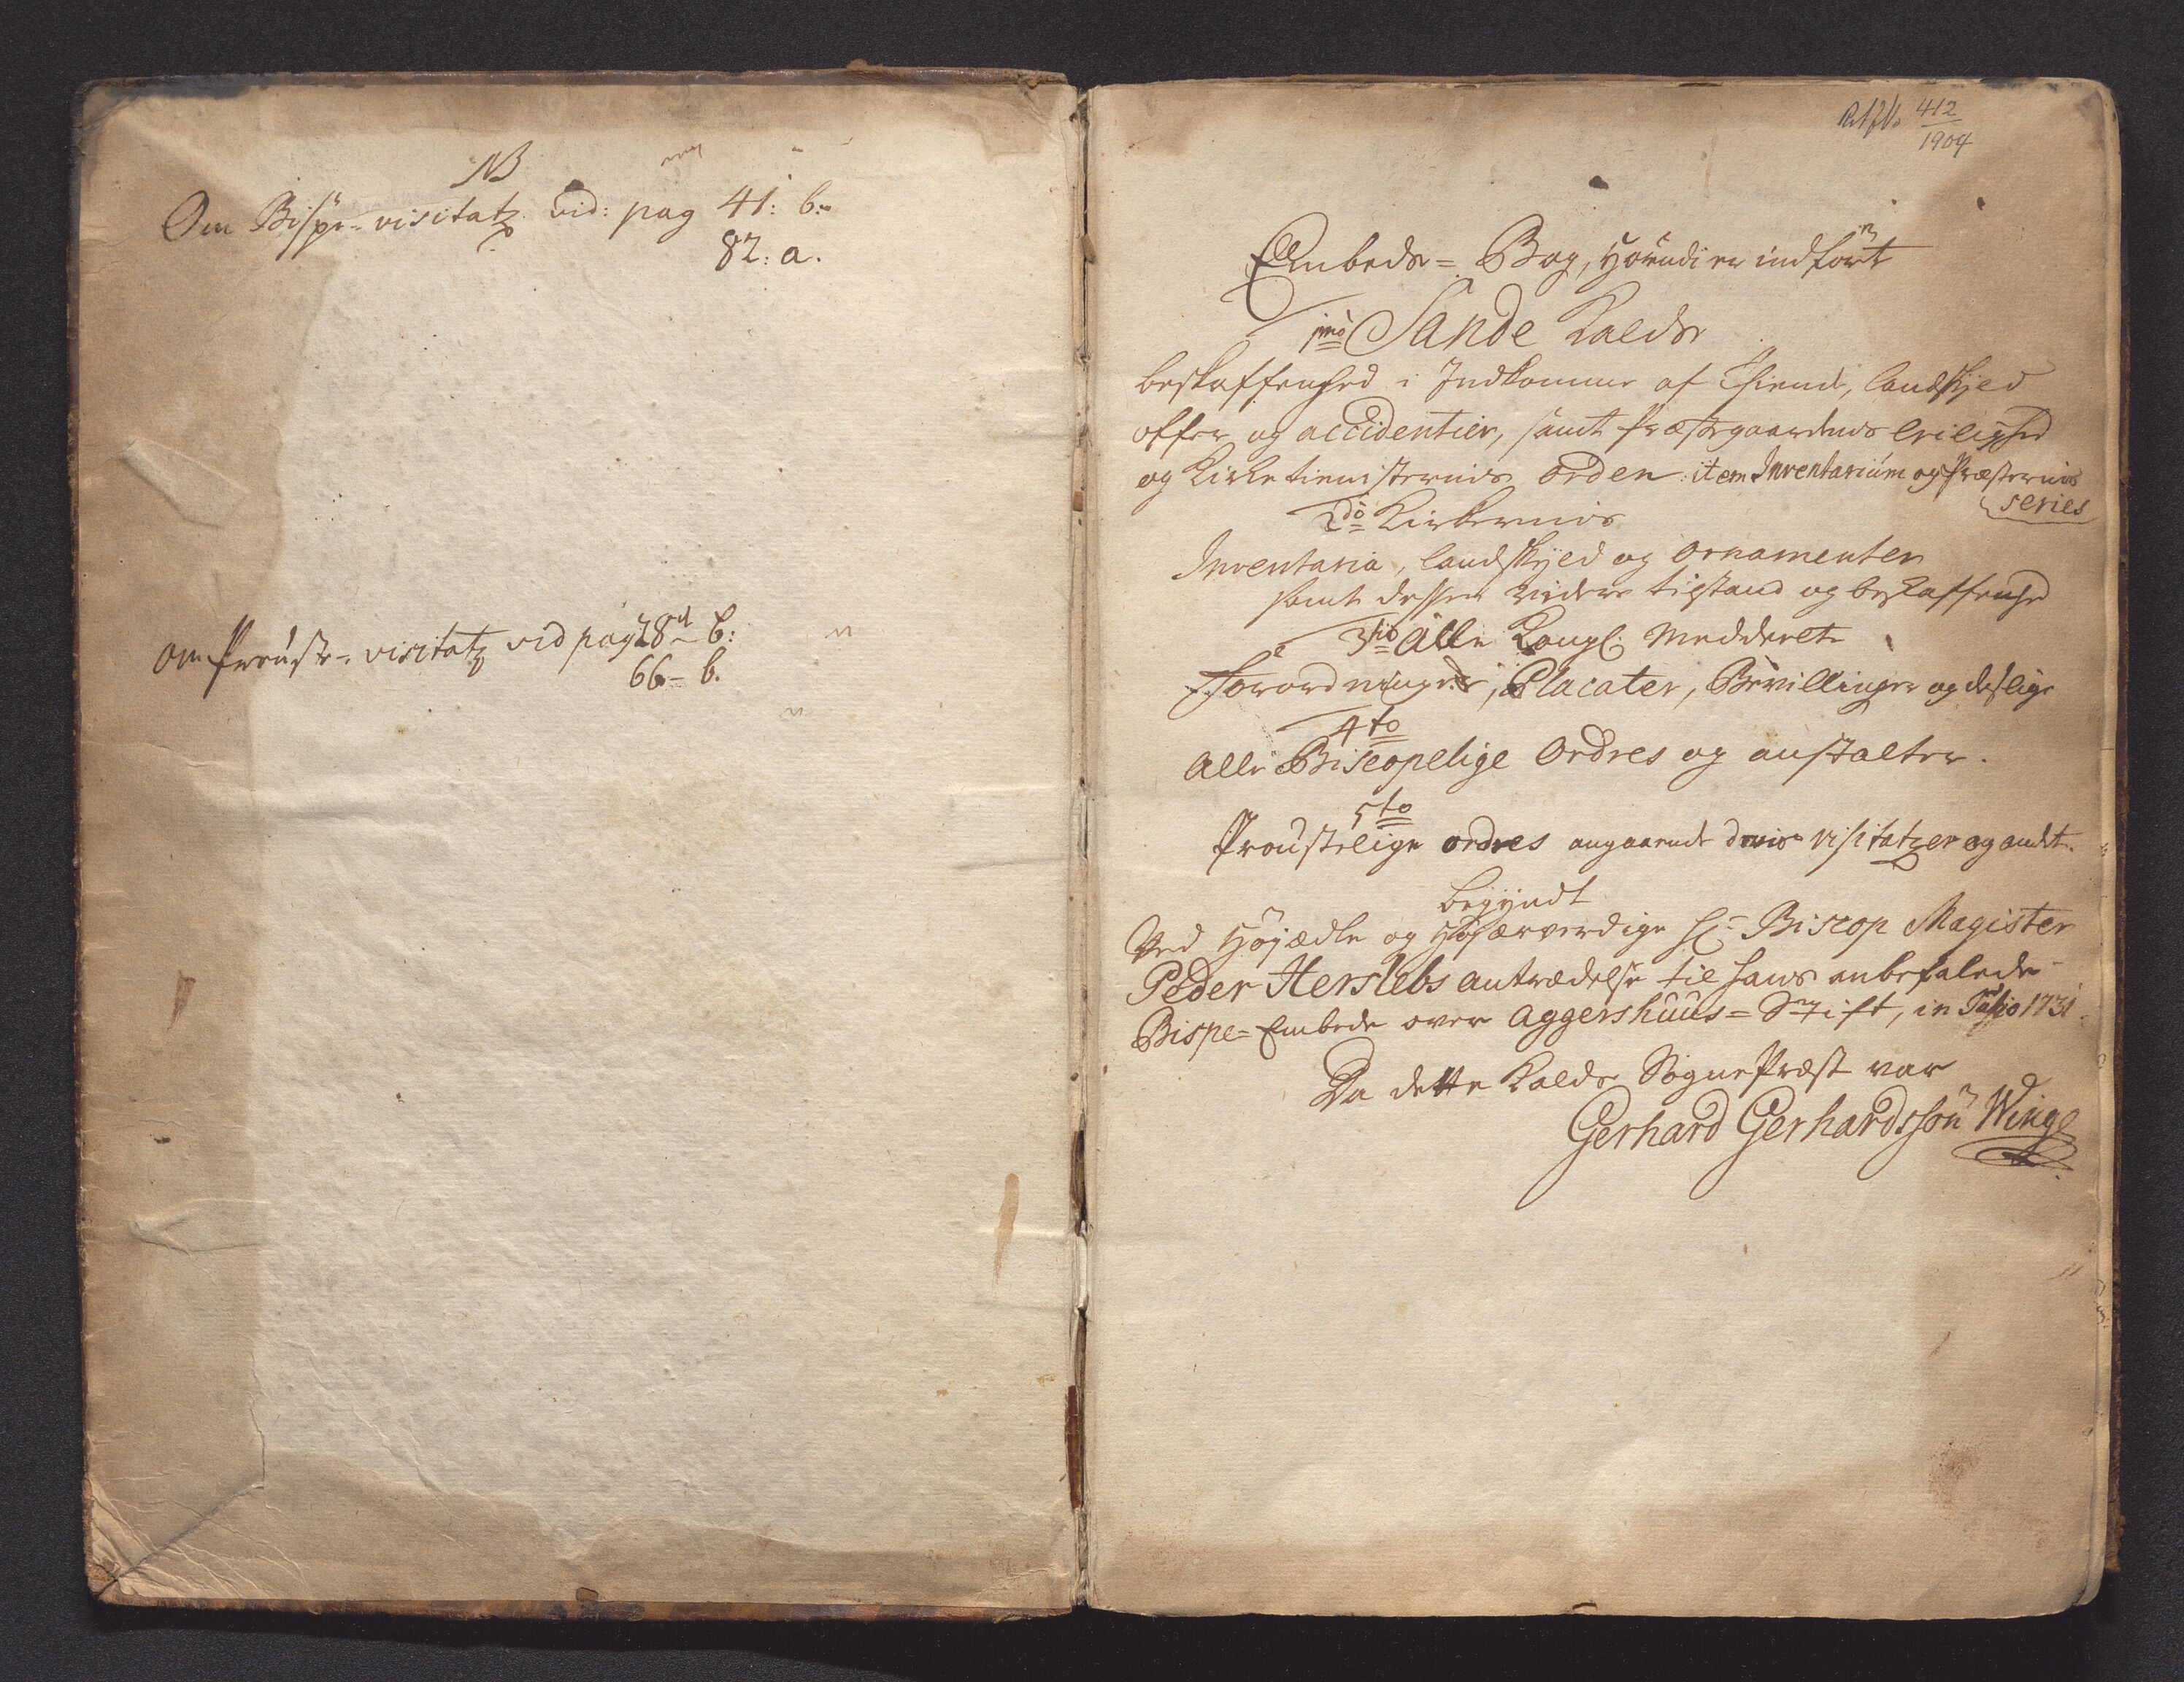 NB
Om Bispe-visitatz vid: pag 41: b:
82: a.
Om Prouste-visitatz vid pag 28 b:
66- b.
412
1904
Embeds= Bog, Hvorudi er indført
1mo Sande Kalds
beskaffenhed i Indkomme af Thiende, landskyld
offer og accidentier, samt Præstegaardens leilighed
og Kirketienisternis orden: item Inventarium og Præsternis
series
2do Kirkernis
Inventaria, landskyld og ornamenter
samt desses videre tilstand og beskaffenhed
3tio Alle Kongl: Meddeelte
Forordninger, Placater, Bevillinger og deslige
4to
Alle Biscopelige Ordres og anstalter.
5to
Proustelige ordres angaaende deris visitatzer og andet.
begyndt
Ved Høyædle og Højærverdige Hr: Biscop Magister
Peder Herslebs antrædelse til hans anbefalede
Bispe= Embede over Aggershuus= Stift, in Julio 1731.
Da dette Kalds SognePræst var
Gerhard Gerhardssøn Winge